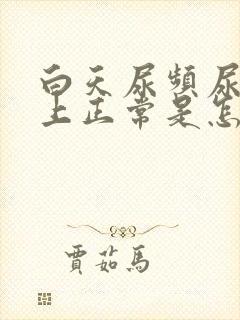 白天尿频尿
上正常是怎
賈茹馬